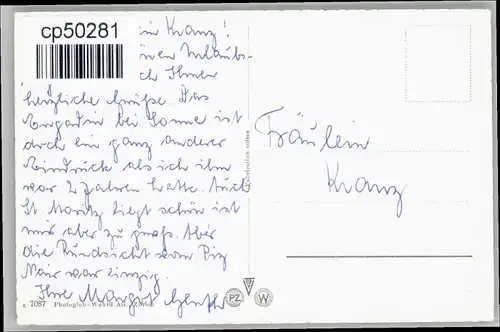 cp50281
ein Kranz!
Urlaubs-
ch Ihnen
herzliche Grüße. Das
Engadin bei Sonne ist
doch ein ganz anderer
Eindruck als ich ihn
vor 2 Jahren hatte. Auch
St. Moritz liegt schön ist
mir aber zu groß. Aber
die Rundsicht vom Piz
Nair war einzig.
Ihre Margret
Fräulein
Kranz
7087 Photoglob-Wehrli AG., Zürich
PZ W